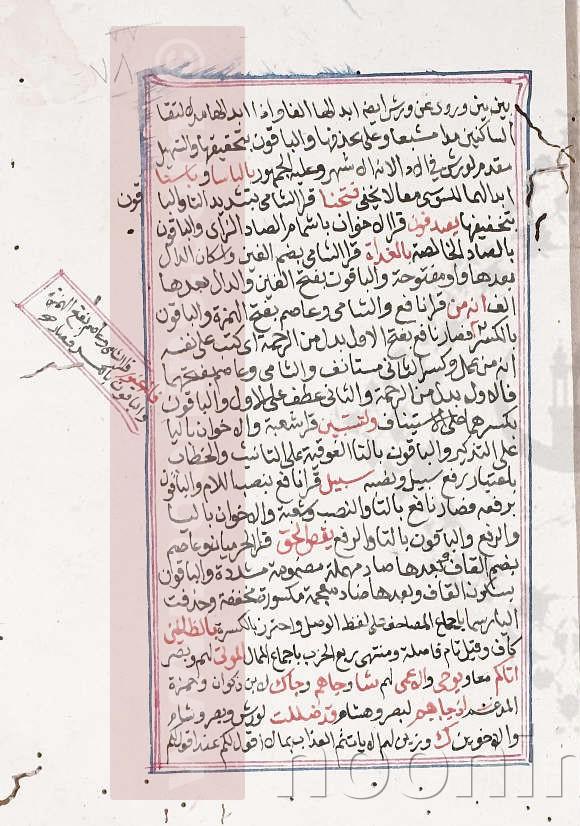 بين بين وروي عن ورش ايضا ابدالها الفا واذا ابدلها مد لالتقا
الساكنين مدا مشبعا وعلي بحذفها والباقون بتحقيقها والتسهيل
مقدم لورش في الاداء لانه الاشهر وعليه الجمهور بالباسا وباسنا
ابدالهما للسوسي معا لا يخفي فتحنا قرا الشامي بتشديد التا والباقون
بتخفيفها يصدفون قرا الاخوان باشمام الصاد الزاي والباقون
بالصاد الخالصة بالغداة قرا الشامي بضم الغين واسكان الدال
وبعدها واو مفتوحة والباقون بفتح الغين والدال بعدها
الف انه من قرا نافع والشامي وعاصم بفتح الهمزة والباقون
بالكسر فصار نافع بفتح الاول بدل من الرحمة اي كتب علي نفسه
انه من عمل وكسر الثاني مستانف والشامي وعاصم بفتحهما
فالاول بدل من الرحمة والثاني عطف علي الاول والباقون
بكسرهما علي الاستيناف ولتستبين قرا شعبة والاخوان باليا
علي التذكير والباقون بالتا الفوقية علي التانيث والخطاب
باعتبار رفع سبيل ونصبه سبيل قرا نافع بنصب اللام والباقون
برفعه فصار نافع بالتا والنصب وشعبة والاخوان باليا
والرفع والباقون بالتا والرفع يقص الحق قرا الحرميان وعاصم
بضم القاف وبعدها صاد مهملة مضمومة مشددة والباقون
بسكون القاف وبعدها ضاد معجمة مكسورة مخففة وحذفت
اليا رسما باجماع المصاحف علي لفظ الوصل واحترز بالكسرة بالظالمين
كاف وقيل تام فاصلة ومنتهي ربع الحزب باجماع الممال الموتي لهم وبصر
اتاكم معا ويوحي والاعمي لهم شا وجاهم وجاك لابن ذكوان وحمزة
المدغم اذ جاهم لبصر وهشام قد ضللت لورش وبصر وشام
والاخوين ك وزين لهم الايات ثم العذاب بما لا اقول لكم عندي اقول لكم
فانه غفور قرا الشامي وعاصم بفتح الهمزة
والباقون بالكسر فصار
noorlin